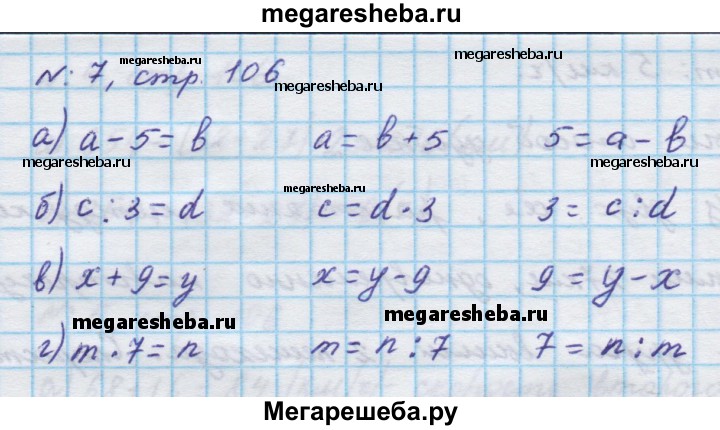 megaresheba.ru
№ 7, стр. 106
megaresheba.ru
megaresheba.ru
megaresheba.ru
а) a - 5 = b   a = b + 5   5 = a - b
megaresheba.ru
megaresheba.ru
megaresheba.ru
б) c : 3 = d   c = d · 3   3 = c : d
в) x + 9 = y   x = y - 9   9 = y - x
megaresheba.ru
megaresheba.ru
г) m · 7 = n   m = n : 7   7 = n : m
Мегарешеба.ру